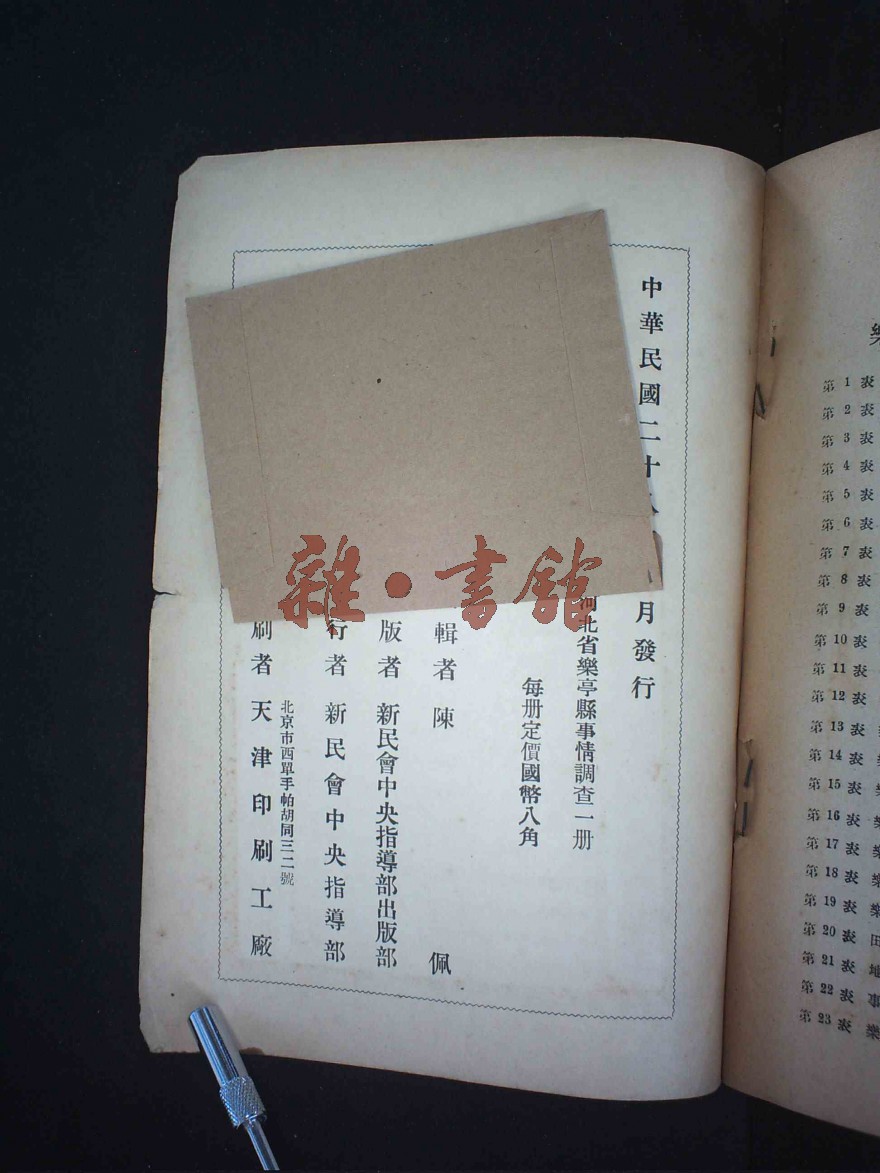 中華民國二十
月發行
河北省樂亭縣事情調查一册
每册定價國幣八角
輯者 陳 佩
版者 新民會中央指導部出版部
行者 新民會中央指導部
北京市西單手帕胡同三二號
刷者 天津印刷工廠
雜·書館
樂
第1表
第2表
第3表
第4表
第5表
第6表
第7表
第8表
第9表
第10表
第11表
第12表
第13表
第14表
第15表 樂
第16表 樂
第17表 樂
第18表 樂
第19表 樂
第20表 田
第21表 地
第22表 事
第23表 樂